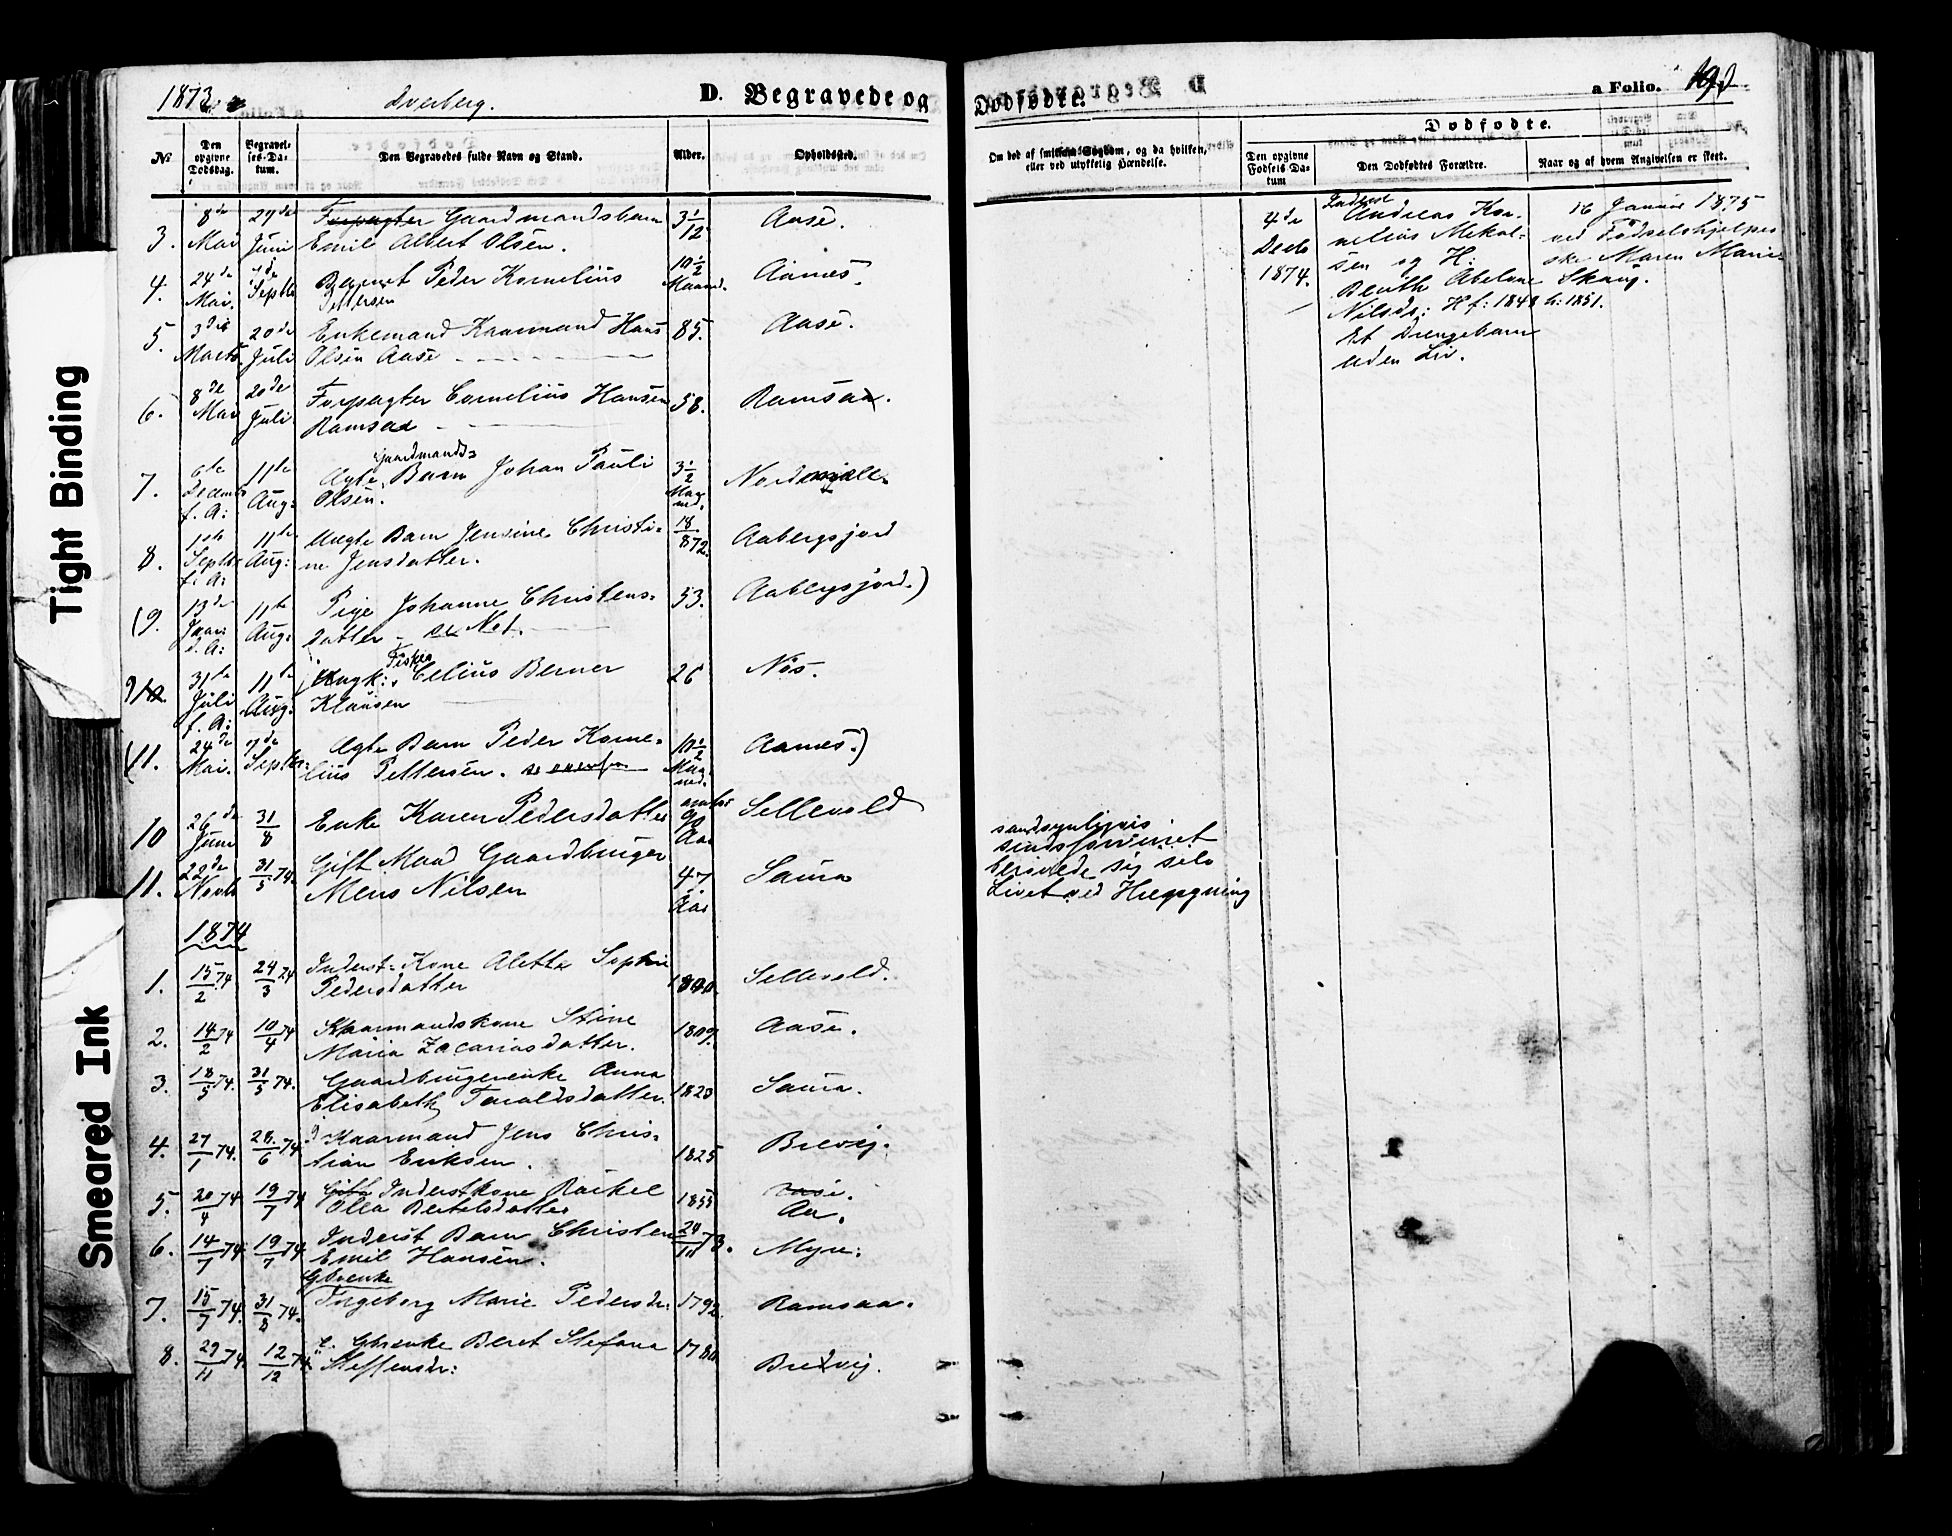 1873
Dverberg.
D. Begravede og
Dødfødte.
a Folio. 190
No
Den opgivne Dødsdag.
Begravelses-Datum.
Den Begravedes fulde Navn og Stand.
Alder.
Opholdssted.
Om død af smitsom Sygdom, og da hvilken, eller ved ulykkelig Hændelse.
Dødfødte.
Den opgivne Fødsels-Datum
Den Dødfødtes Forældre.
Naar og af hvem Angivelsen er skeet.
3. 8de 29de Forpagter Gaardmandsbarn 3 1/12 Aase.
Mai Juni Emil Albert Olsen.
4. 24de 7de Peder Kornelius 10 1/2 Aanes.
Mai. Septbr Pettersen Maaned.
5. 3die 20de Enkemand Kaarmand Hans 85. Aase.
Marts Juli Olsen Aase
6. 8de 20de Forpagter Cornelius Hansen 58. Ramsaa.
Mai Juli Ramsaa
Gaardmands
7. 6te 11te Ægte Barn Johan Pauli 3 1/2 Nordmjelle.
Decemb f. A: Aug: Olsen. Maaned.
8. 1ste 11te Uægte Barn Jensine Christi- 18/8 72. Aabergsjord
Septbr f. A: Aug: ne Jensdatter.
(9. 13de 11te Pige Johanne Christens- 53. Aabergsjord.)
Janr d. A: Aug: datter - se No 1.
Fisker
9 31te 11te Ungk: Celius Berner 26 Nös.
Juli f. A: Aug: Klausen
(11. 24de 7de Ægte Barn Peder Korne- 10 1/2 Aanes.)
Mai. Septbr. lius Pettersen. se ovenfor Maaned.
10 26de 31/8 Enke Karen Pedersdatter omtr 90 Aar Sellevold
Juni
11. 22de 31/5 74. Gift Mand Gaardbruger 47 Aar Saura
Novb Mens Nilsen
sandsynligvis
sindsforvirret
berøvede sig selv
Livet ved Hængning
1874
1. 15/2 74 24/3 74 Inderst-Kone Aletta Sophie Sellevold.
Pedersdatter
2. 14/2 74 10/4 74 Kaarmandskone Stine 1809. Aase.
Maria Zacariasdatter.
3. 18/5 74. 31/5 74. Gaardbrugerenke Anna 1823 Saura.
Elisabeth Taraldsdatter.
4. 27/1 74. 28/6 74. Kaarmand Jens Chris- 1825 Brevig.
tian Eriksen.
5. 20/4 74. 19/7 74 Gift Inderstkone Rakel 1855 Aase.
Olea Bertelsdatter Aa.
6. 14/7 74. 19/7 74. Inderst Barn Christen 24/11 73. Myre.
Emil Hansen.
Gbrenke
7. 15/7 74. 31/8 74. Ingeborg Marie Pedersdr. 1792 Ramsaa.
8. 29/11 74. 12/12 74. Gbrenke Beret Stefana 1780 Bredvig.
Steffensdr:
4de Decb 1874.
Inderst
Andreas Kor-
nelius Mikal-
sen og H:
Berith Abelone
Nilsdr: H f: 1848 h: 1851.
Et Drengebarn
uden Liv.
16 Januar 1875
ved Födselshjelper
ske Maren Marie
Skaug.
Tight Binding
Smeared Ink